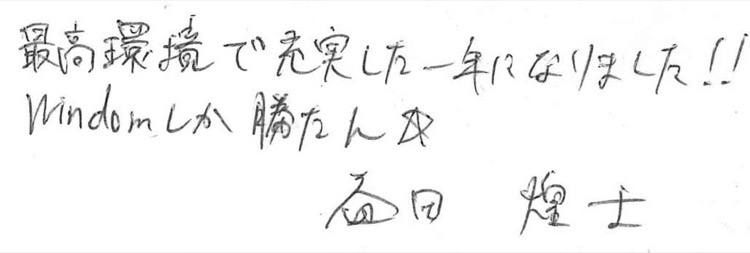 最高環境で充実した一年になりました!!
Windomしか勝たん☆
益田 煌士